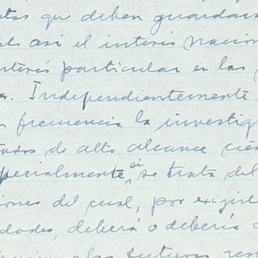 tas que deben guardars
así el interés nacion
interés particular en las
. Independientemente
frecuencia la investig
ados de alto alcance cien
specialmente si se trata del
iones del cual, por exigir
dades, deberá o debería
las futuras